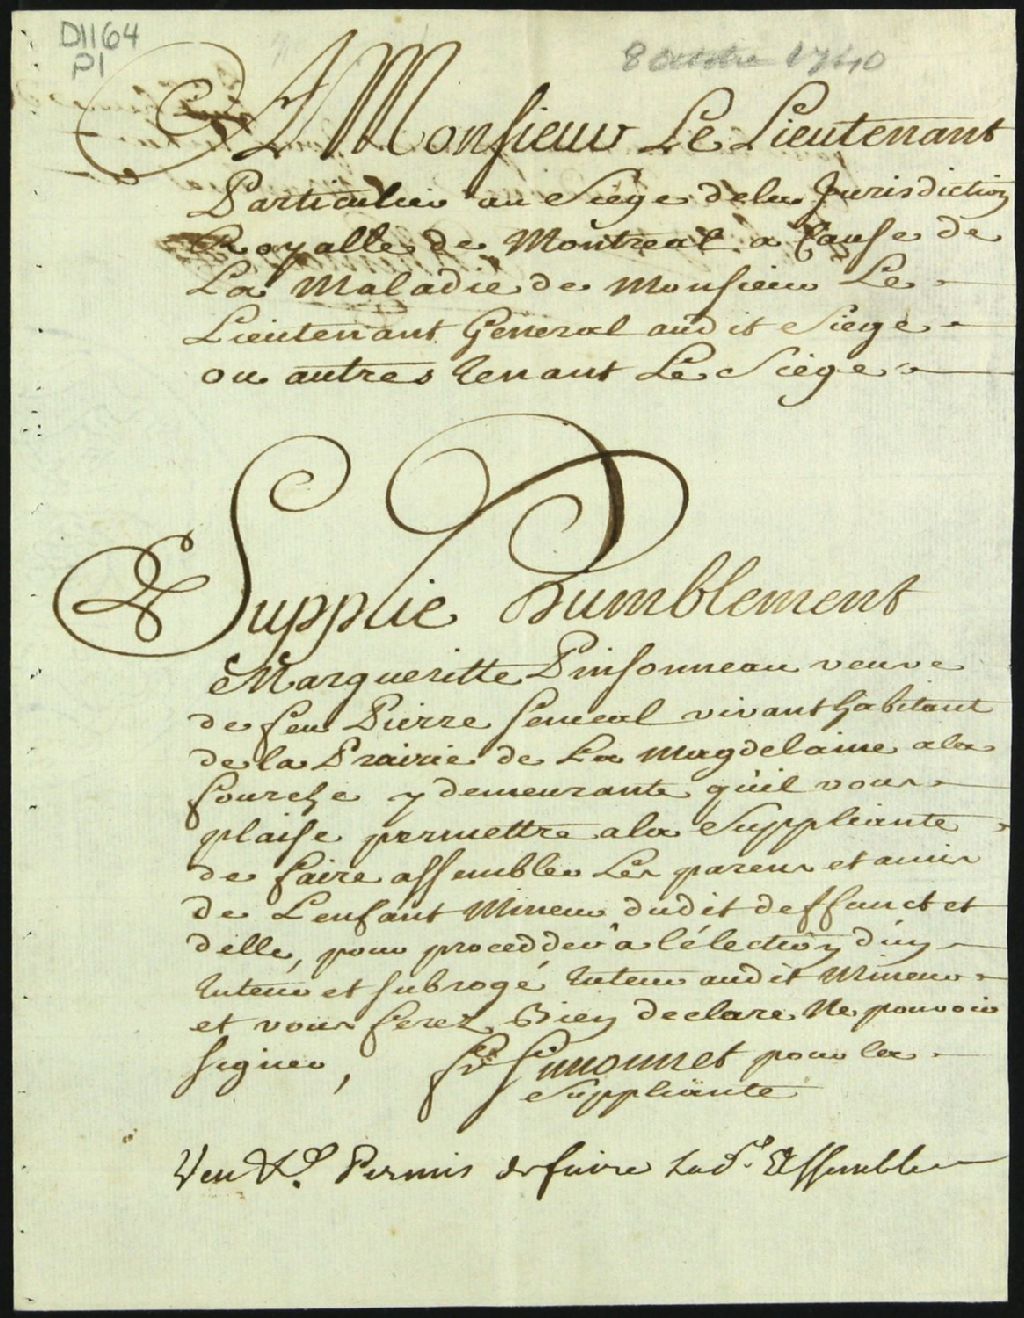 D1164
P1
8 octobre 1740
A Monsieur Le Lieutenant
Particulier au Siége dela Jurisdiction
Royalle de Montreal a Cause de
La Maladie de Monsieur Le
Lieutenant General audit Siege
ou autres tenant Le Siege
Supplie Humblement
Margueritte Pinsonneau veuve
de feu Pierre Seneeal vivant habitant
de la Prairie de La Magdelaine ala
fourche y demeurante, quil vous
plaise permettre ala Suppliante
de faire assembler Les parens et amis
de Lenfant Mineur dudit deffunct et
delle, pour procedder à l'élection d'uy
tuteur et subrogé tuteur audit Mineur
et vous ferez Biey declare Ne pouvoir
signer, fr Simonnet pour la
Suppliante
Veu &a. Permis de faire Lad. Assemblée